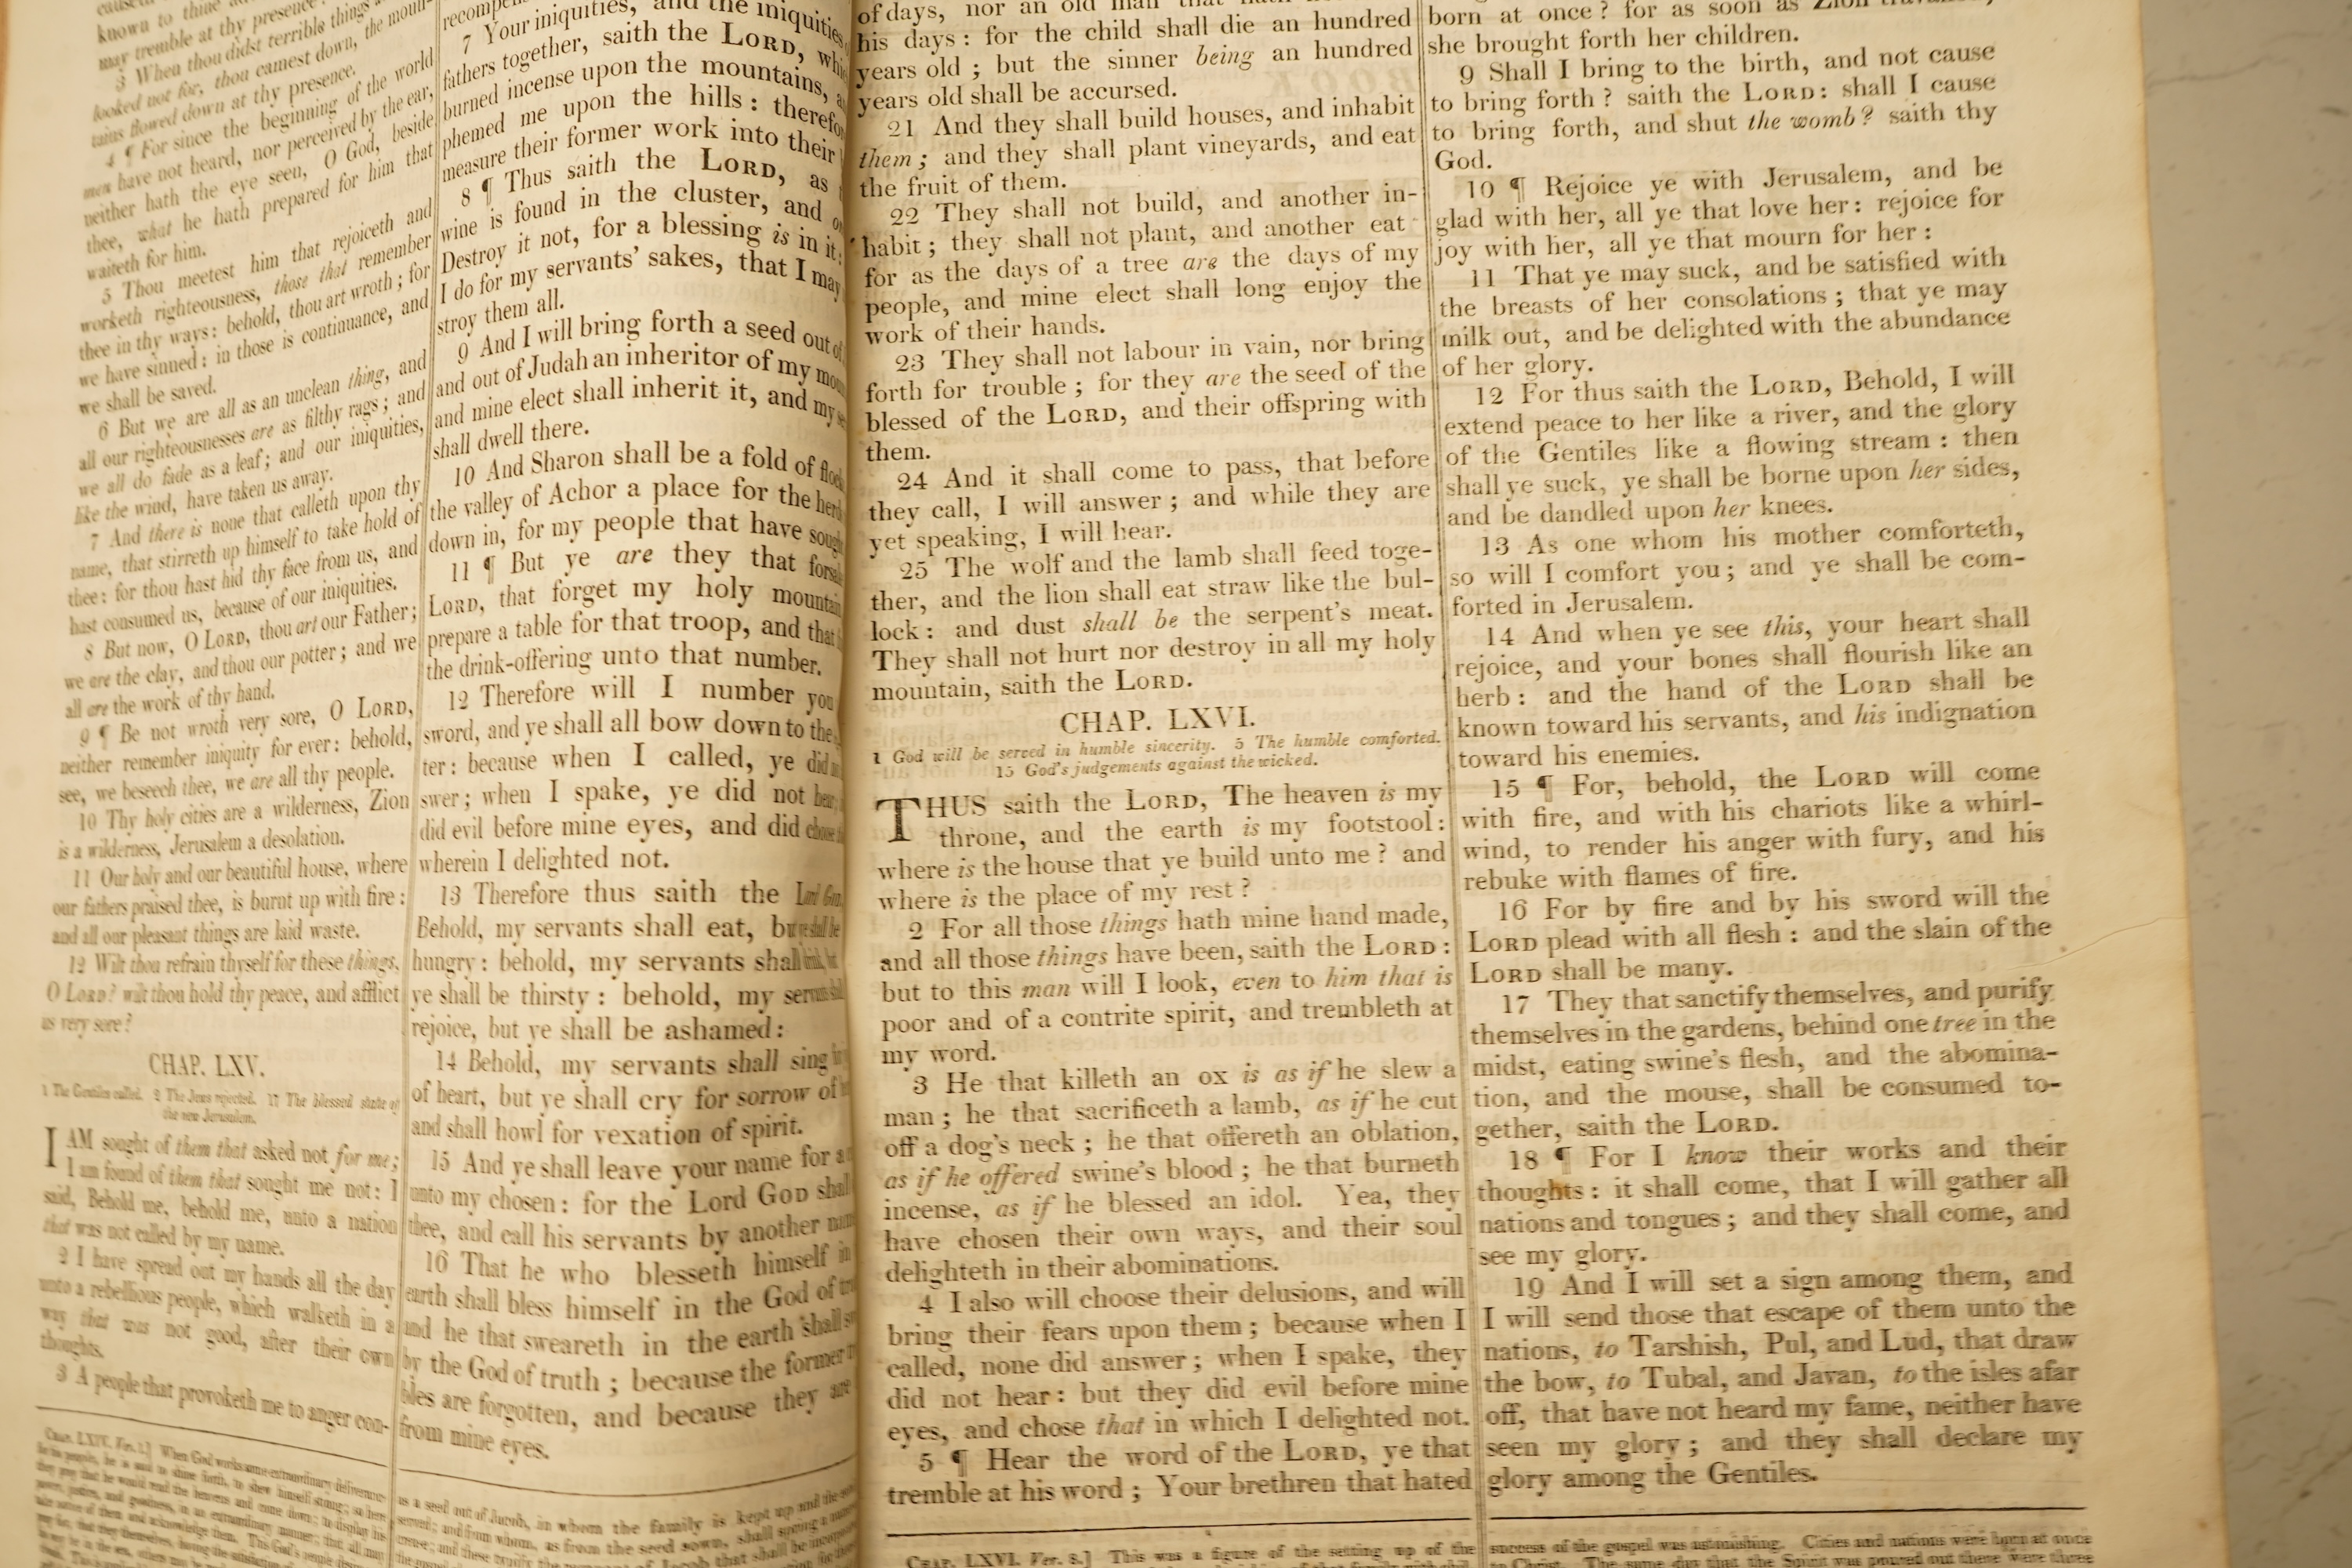 known to thine
may tremble at thy presence
3 When thou didst terrible things
looked not for, thou camest down, the moun-
tains flowed down at thy presence.
4 ¶ For since the beginning of the world
men have not heard, nor perceived by the ear,
neither hath the eye seen, O God, beside
thee, what he hath prepared for him that
waiteth for him.
5 Thou meetest him that rejoiceth and
worketh righteousness, those that remember
thee in thy ways: behold, thou art wroth; for
we have sinned: in those is continuance, and
we shall be saved.
6 But we are all as an unclean thing, and
all our righteousnesses are as filthy rags; and
we all do fade as a leaf; and our iniquities,
like the wind, have taken us away.
7 And there is none that calleth upon thy
name, that stirreth up himself to take hold of
thee: for thou hast hid thy face from us, and
hast consumed us, because of our iniquities.
8 But now, O LORD, thou art our Father;
we are the clay, and thou our potter; and we
all are the work of thy hand.
9 ¶ Be not wroth very sore, O LORD,
neither remember iniquity for ever: behold,
see, we beseech thee, we are all thy people.
10 Thy holy cities are a wilderness, Zion
is a wilderness, Jerusalem a desolation.
11 Our holy and our beautiful house, where
our fathers praised thee, is burnt up with fire:
and all our pleasant things are laid waste.
12 Wilt thou refrain thyself for these things,
O LORD? wilt thou hold thy peace, and afflict
us very sore?
CHAP. LXV.
1 The Gentiles called. 2 The Jews rejected. 17 The blessed state of
the new Jerusalem.
I AM sought of them that asked not for me;
I am found of them that sought me not: I
said, Behold me, behold me, unto a nation
that was not called by my name.
2 I have spread out my hands all the day
unto a rebellious people, which walketh in a
way that was not good, after their own
thoughts.
3 A people that provoketh me to anger con-
CHAP. LXIV. Ver. 1.] When God works some extraordinary deliverance
7 Your iniquities, and the iniquities
fathers together, saith the LORD,
burned incense upon the mountains,
phemed me upon the hills: therefo
measure their former work into their
8 ¶ Thus saith the LORD, as
wine is found in the cluster, and
Destroy it not, for a blessing is in it:
I do for my servants' sakes, that I may
stroy them all.
9 And I will bring forth a seed out of
and out of Judah an inheritor of my
and mine elect shall inherit it, and my
shall dwell there.
10 And Sharon shall be a fold of
the valley of Achor a place for the
down in, for my people that have
11 ¶ But ye are they that
LORD, that forget my holy mountain
prepare a table for that troop, and that
the drink-offering unto that number.
12 Therefore will I number you
sword, and ye shall all bow down to the
ter: because when I called, ye did
swer; when I spake, ye did not
did evil before mine eyes, and did
wherein I delighted not.
13 Therefore thus saith the
Behold, my servants shall eat,
hungry: behold, my servants shall
ye shall be thirsty: behold, my
rejoice, but ye shall be ashamed:
14 Behold, my servants shall sing
of heart, but ye shall cry for sorrow of
and shall howl for vexation of spirit.
15 And ye shall leave your name for a
unto my chosen: for the Lord GOD shall
thee, and call his servants by another
16 That he who blesseth himself in
earth shall bless himself in the God of
and he that sweareth in the earth shall
by the God of truth; because the former
bles are forgotten, and because they are
from mine eyes.
as a seed out of Jacob, in whom the family is kept up and the
of days, nor an old man that hath
his days: for the child shall die an hundred
years old; but the sinner being an hundred
years old shall be accursed.
21 And they shall build houses, and inhabit
them; and they shall plant vineyards, and eat
the fruit of them.
22 They shall not build, and another in-
habit; they shall not plant, and another eat
for as the days of a tree are the days of my
people, and mine elect shall long enjoy the
work of their hands.
23 They shall not labour in vain, nor bring
forth for trouble; for they are the seed of the
blessed of the LORD, and their offspring with
them.
24 And it shall come to pass, that before
they call, I will answer; and while they are
yet speaking, I will hear.
25 The wolf and the lamb shall feed toge-
ther, and the lion shall eat straw like the bul-
lock: and dust shall be the serpent's meat.
They shall not hurt nor destroy in all my holy
mountain, saith the LORD.
CHAP. LXVI.
1 God will be served in humble sincerity. 5 The humble comforted.
15 God's judgements against the wicked.
THUS saith the LORD, The heaven is my
throne, and the earth is my footstool:
where is the house that ye build unto me? and
where is the place of my rest?
2 For all those things hath mine hand made,
and all those things have been, saith the LORD:
but to this man will I look, even to him that is
poor and of a contrite spirit, and trembleth at
my word.
3 He that killeth an ox is as if he slew a
man; he that sacrificeth a lamb, as if he cut
off a dog's neck; he that offereth an oblation,
as if he offered swine's blood; he that burneth
incense, as if he blessed an idol. Yea, they
have chosen their own ways, and their soul
delighteth in their abominations.
4 I also will choose their delusions, and will
bring their fears upon them; because when I
called, none did answer; when I spake, they
did not hear: but they did evil before mine
eyes, and chose that in which I delighted not.
5 ¶ Hear the word of the LORD, ye that
tremble at his word; Your brethren that hated
CHAP. LXVI. Ver. 8.] This was a figure of the setting up of the
born at once? for as soon as Zion
she brought forth her children.
9 Shall I bring to the birth, and not cause
to bring forth? saith the LORD: shall I cause
to bring forth, and shut the womb? saith thy
God.
10 ¶ Rejoice ye with Jerusalem, and be
glad with her, all ye that love her: rejoice for
joy with her, all ye that mourn for her:
11 That ye may suck, and be satisfied with
the breasts of her consolations; that ye may
milk out, and be delighted with the abundance
of her glory.
12 For thus saith the LORD, Behold, I will
extend peace to her like a river, and the glory
of the Gentiles like a flowing stream: then
shall ye suck, ye shall be borne upon her sides,
and be dandled upon her knees.
13 As one whom his mother comforteth,
so will I comfort you; and ye shall be com-
forted in Jerusalem.
14 And when ye see this, your heart shall
rejoice, and your bones shall flourish like an
herb: and the hand of the LORD shall be
known toward his servants, and his indignation
toward his enemies.
15 ¶ For, behold, the LORD will come
with fire, and with his chariots like a whirl-
wind, to render his anger with fury, and his
rebuke with flames of fire.
16 For by fire and by his sword will the
LORD plead with all flesh: and the slain of the
LORD shall be many.
17 They that sanctify themselves, and purify
themselves in the gardens, behind one tree in the
midst, eating swine's flesh, and the abomina-
tion, and the mouse, shall be consumed to-
gether, saith the LORD.
18 ¶ For I know their works and their
thoughts: it shall come, that I will gather all
nations and tongues; and they shall come, and
see my glory.
19 And I will set a sign among them, and
I will send those that escape of them unto the
nations, to Tarshish, Pul, and Lud, that draw
the bow, to Tubal, and Javan, to the isles afar
off, that have not heard my fame, neither have
seen my glory; and they shall declare my
glory among the Gentiles.
success of the gospel was astonishing. Cities and nations were born at once
to Christ. The same day that the Spirit was poured out there were three